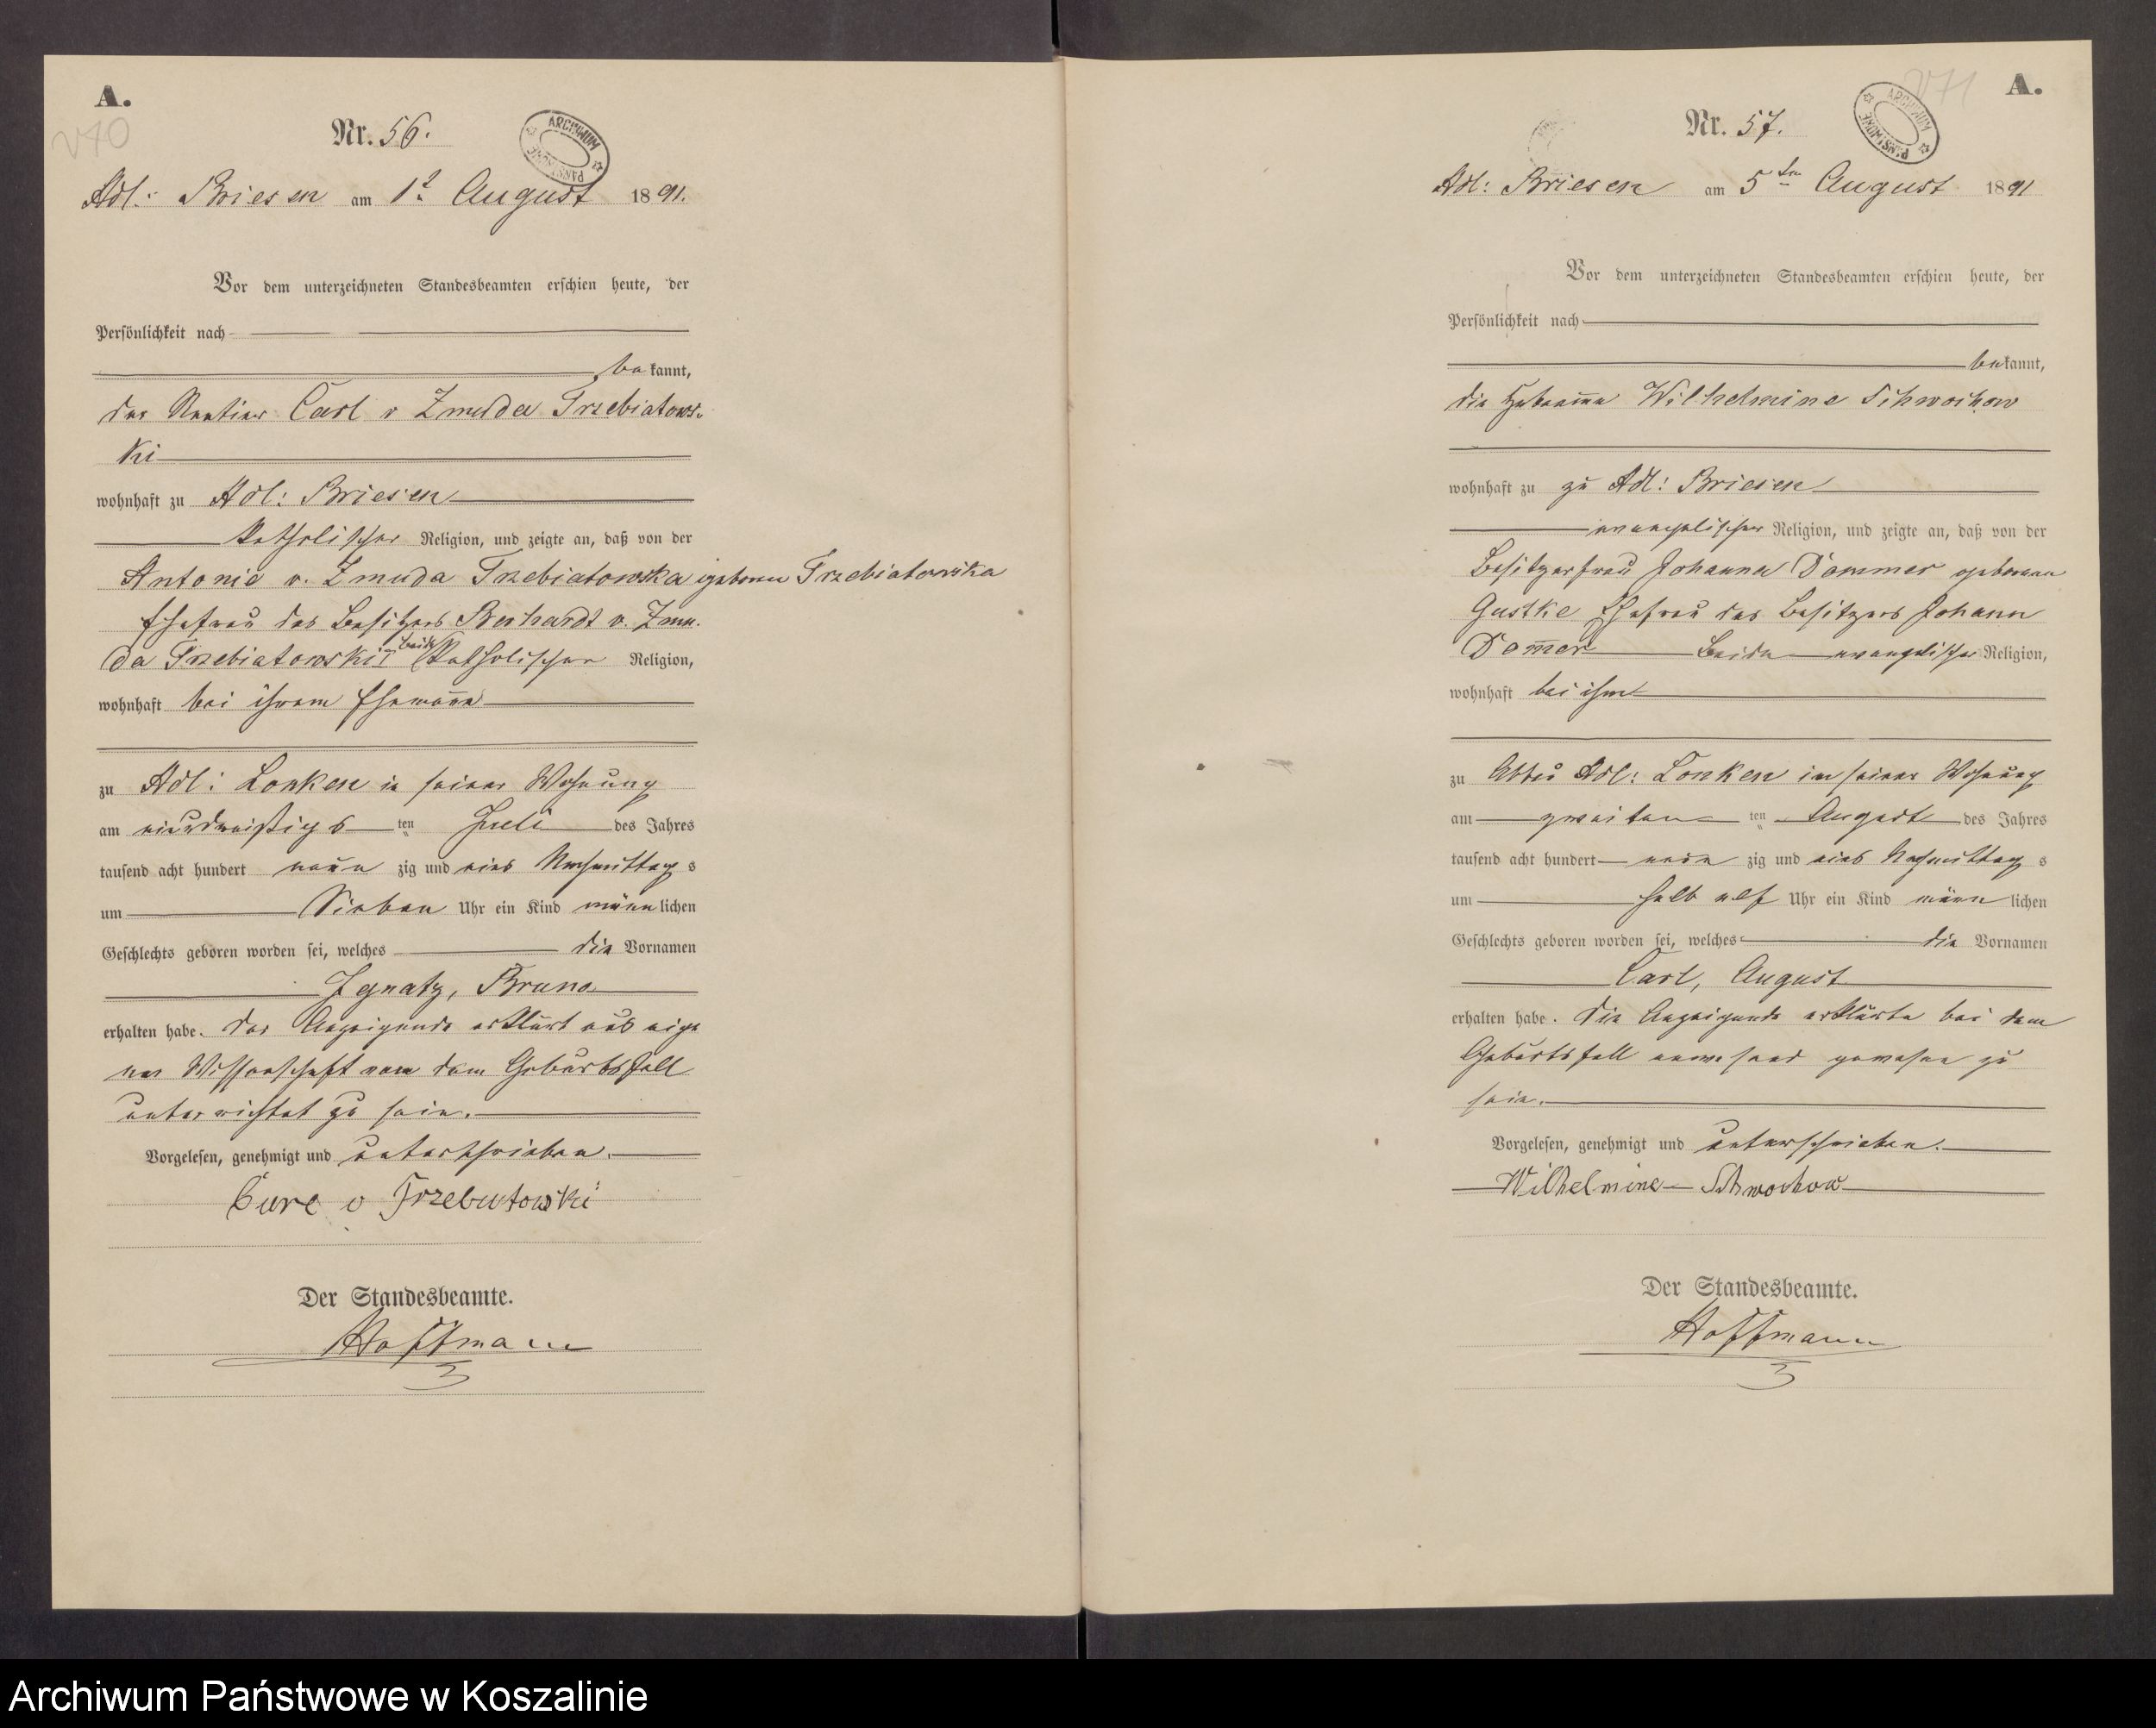 A.
V70
Nr. 56.
ARCHIWUM PAŃSTWOWE
Adl: Briesen am 1t August 1891.
Vor dem unterzeichneten Standesbeamten erschien heute, der
Persönlichkeit nach
bekannt,
der Rentier Carl v Zmuda Trzebiatows-
ki
wohnhaft zu Adl: Briesen
katholischer Religion, und zeigte an, daß von der
Antonie v. Zmuda Trzebiatowska geborne Trzebiatowska
Ehefrau des Besitzers Bernhardt v. Zmu-
da Trzebiatowski beide katholischer Religion,
wohnhaft bei ihrem Ehemann
zu Adl: Lonken in seiner Wohnung
am einsdreißigs ten Juli des Jahres
tausend acht hundert neun zig und eins Nachmittag s
um Sieben Uhr ein Kind männlichen
Geschlechts geboren worden sei, welches die Vornamen
Ignatz, Bruno
erhalten habe. Der Anzeigende erklärt aus eige
ner Wissenschaft von dem Geburtsfall
unterrichtet zu sein.
Vorgelesen, genehmigt und unterschrieben.
Carl v Trzebiatowski
Der Standesbeamte.
Hoffmann
V71
A.
Nr. 57.
ARCHIWUM PAŃSTWOWE
Adl: Briesen am 5ten August 1891
Vor dem unterzeichneten Standesbeamten erschien heute, der
Persönlichkeit nach
bekannt,
die Hebamme Wilhelmine Schwochow
wohnhaft zu zu Adl: Briesen
evangelischer Religion, und zeigte an, daß von der
Besitzerfrau Johanna Dommer geborene
Gustke Ehefrau des Besitzers Johann
Domer Beide evangelischer Religion,
wohnhaft bei ihm
zu Abbau Adl: Lonken in seiner Wohnung
am zweiten ten August des Jahres
tausend acht hundert neun zig und eins Nachmittag s
um halb elf Uhr ein Kind männ lichen
Geschlechts geboren worden sei, welches die Vornamen
Carl, August
erhalten habe. Die Anzeigende erklärte bei dem
Geburtsfall anwesend gewesen zu
sein.
Vorgelesen, genehmigt und unterschrieben.
Wilhelmine Schwochow
Der Standesbeamte.
Hoffmann
Archiwum Państwowe w Koszalinie